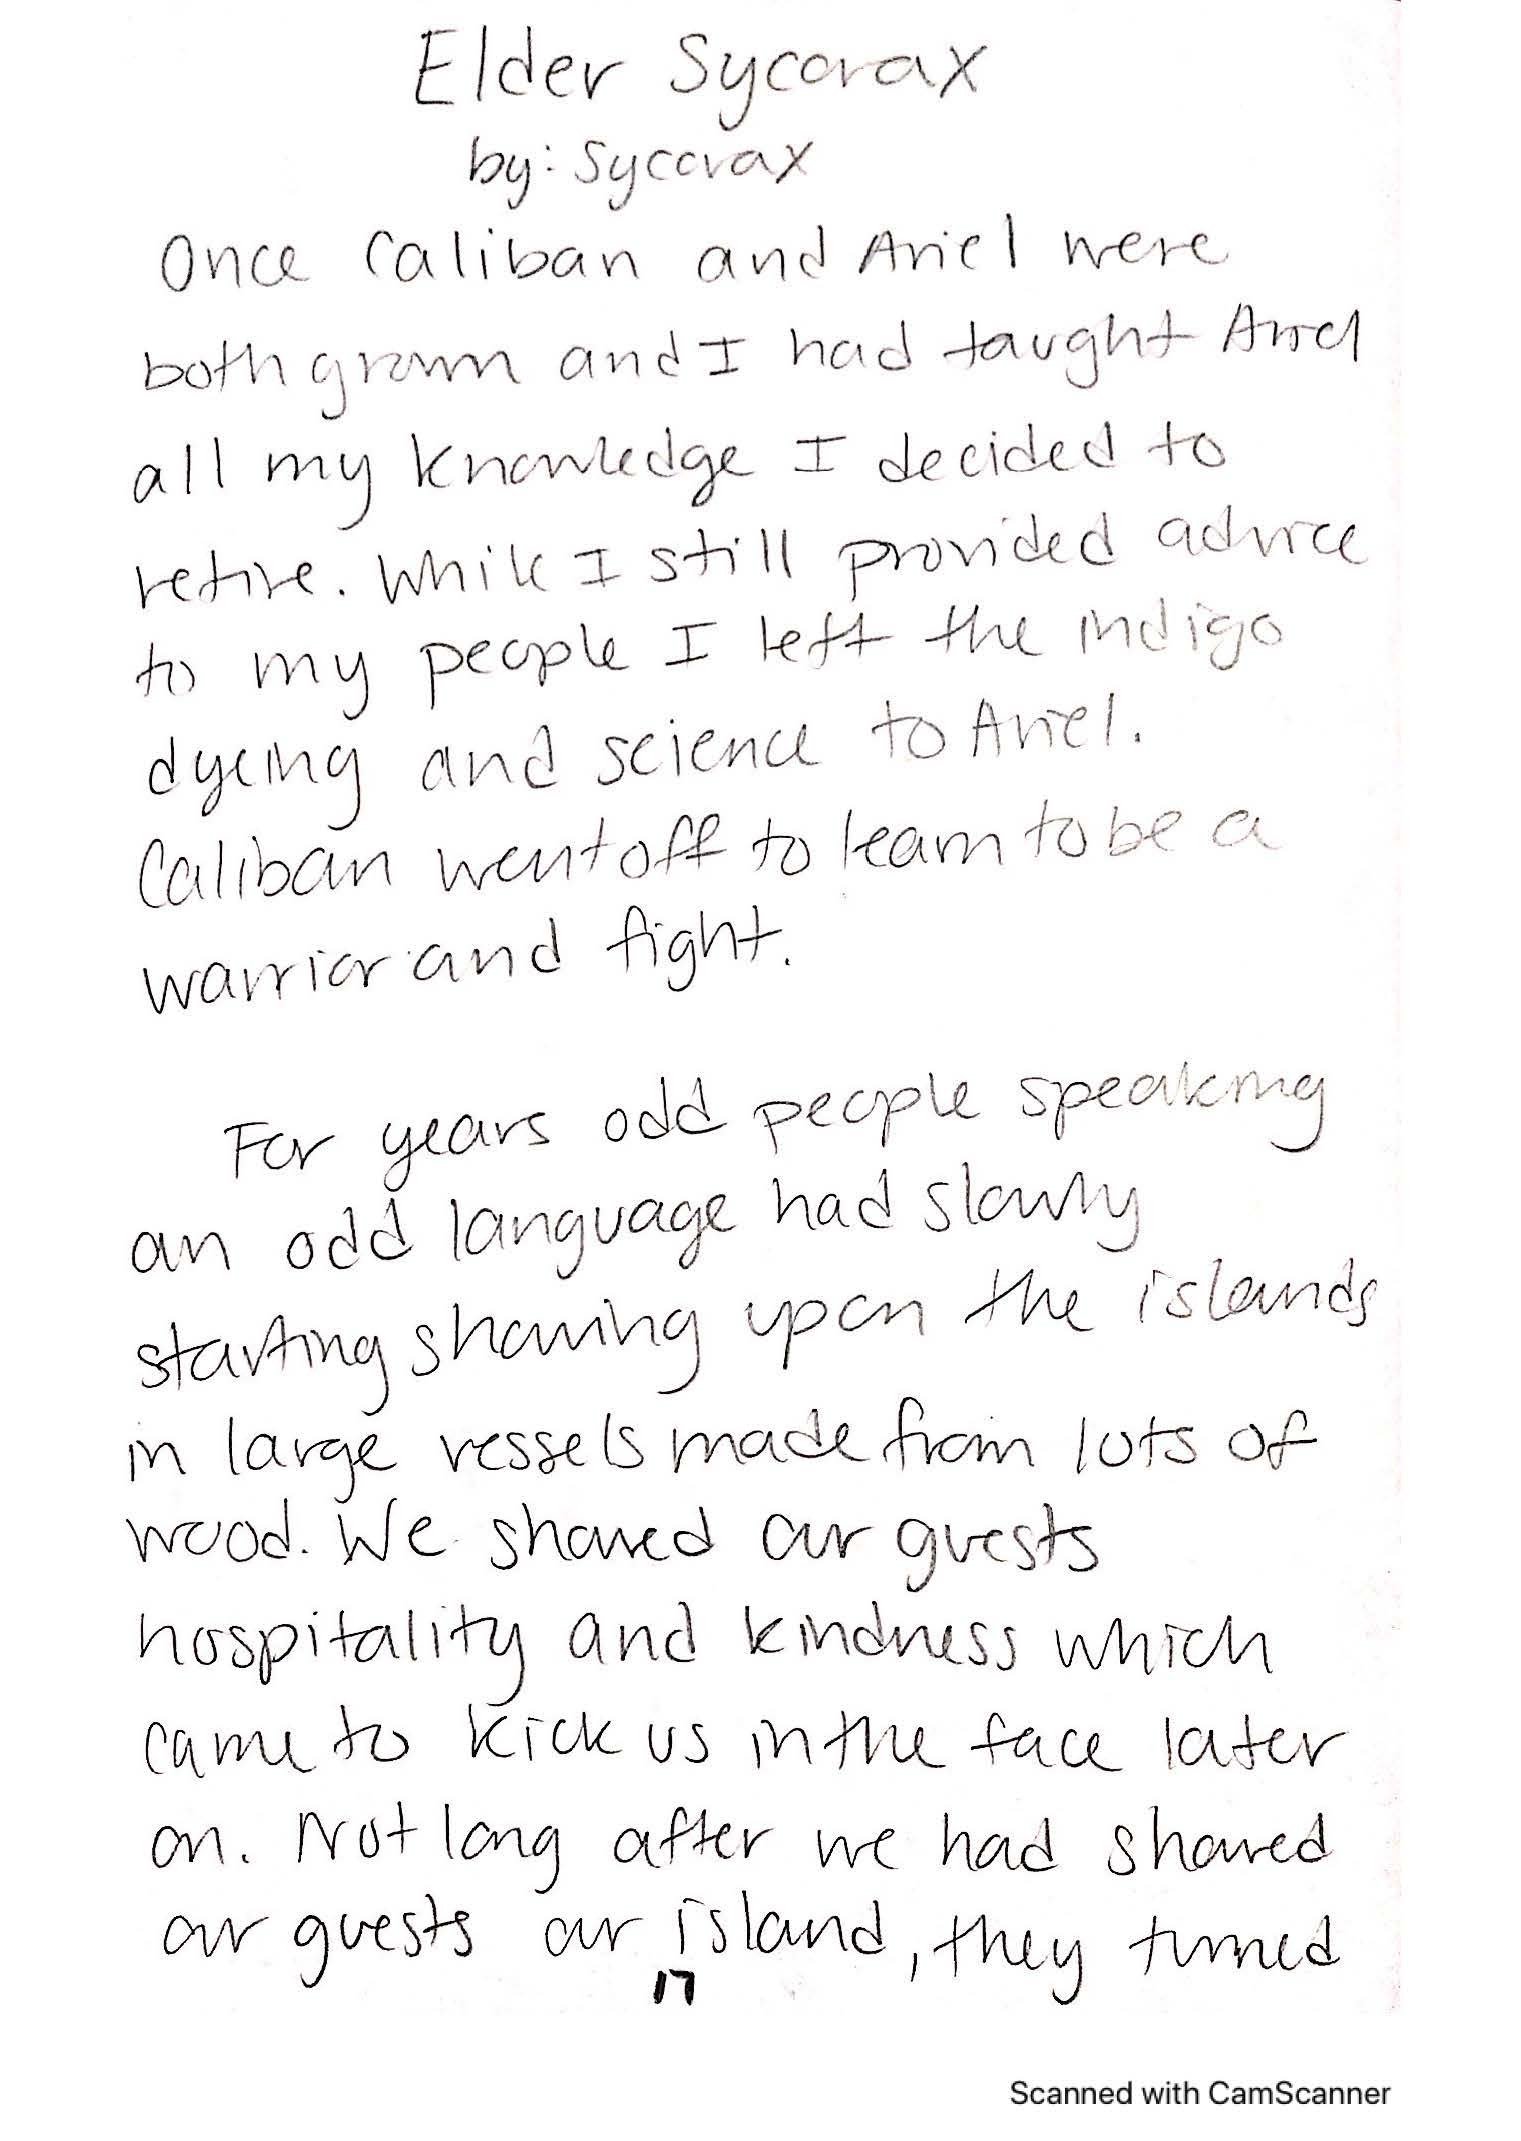 Elder Sycorax
by: Sycorax
Once Caliban and Ariel were
both grown and I had taught Ariel
all my knowledge I decided to
retire. While I still provided advice
to my people I left the indigo
dyeing and science to Ariel.
Caliban went off to learn to be a
warrior and fight.
For years odd people speaking
an odd language had slowly
starting showing upon the islands
in large vessels made from lots of
wood. We showed our guests
hospitality and kindness which
came to kick us in the face later
on. Not long after we had showed
our guests our island, they turned
17
Scanned with CamScanner